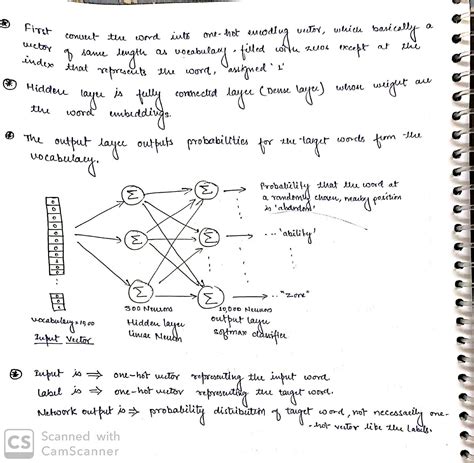 First convert the word into one-hot encoding vector, which basically a
vector of same length as vocabulary. filled with zeros except at the
index that represents the word, assigned '1'
Hidden layer is fully connected layer (Dense layer) whose weight are
the word embeddings.
The output layer outputs probabilities for the target words from the
vocabulary.
Probability that the word at
a randomly chosen, nearby position
is 'abandon'
... 'ability'
... "zone"
Σ Σ
Σ Σ
Σ Σ
0
0
0
0
0
0
1
0
0
0
300 Neurons
10,000 Neurons
Hidden layer
output layer
Linear Neuron
softmax classifier
Input Vector
Input is ⇒ one-hot vector representing the input word.
Label is ⇒ one-hot vector representing the target word.
Network output is ⇒ probability distribution of target word, not necessarily one-
-hot vector like the labels.
CS Scanned with
CamScanner